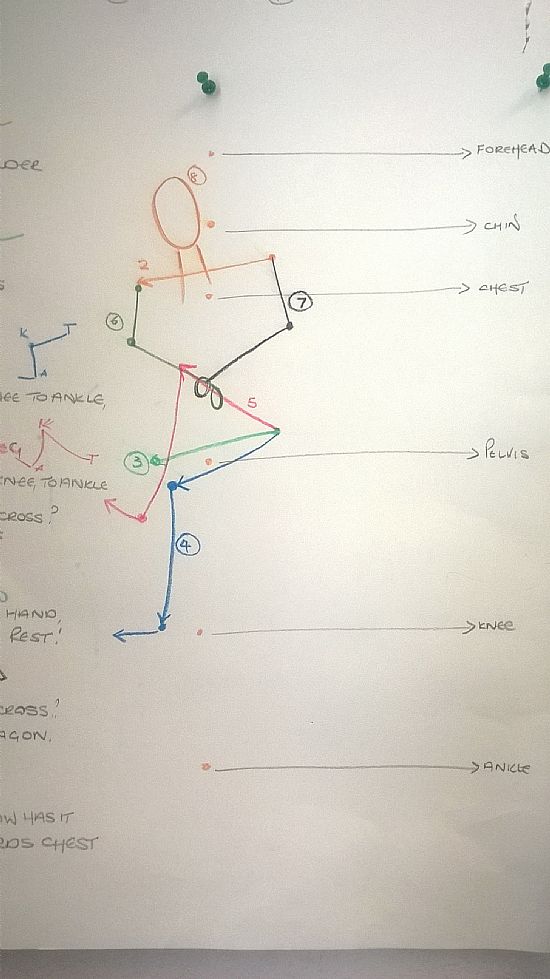 FOREHEAD
8
CHIN
2
CHEST
7
6
K T
A
TO ANKLE,
5
K
T
3
PELVIS
KNEE, TO ANKLE
CROSS?
4
HAND,
KNEE
REST!
CROSS?
ANKLE
HAS IT
CHEST